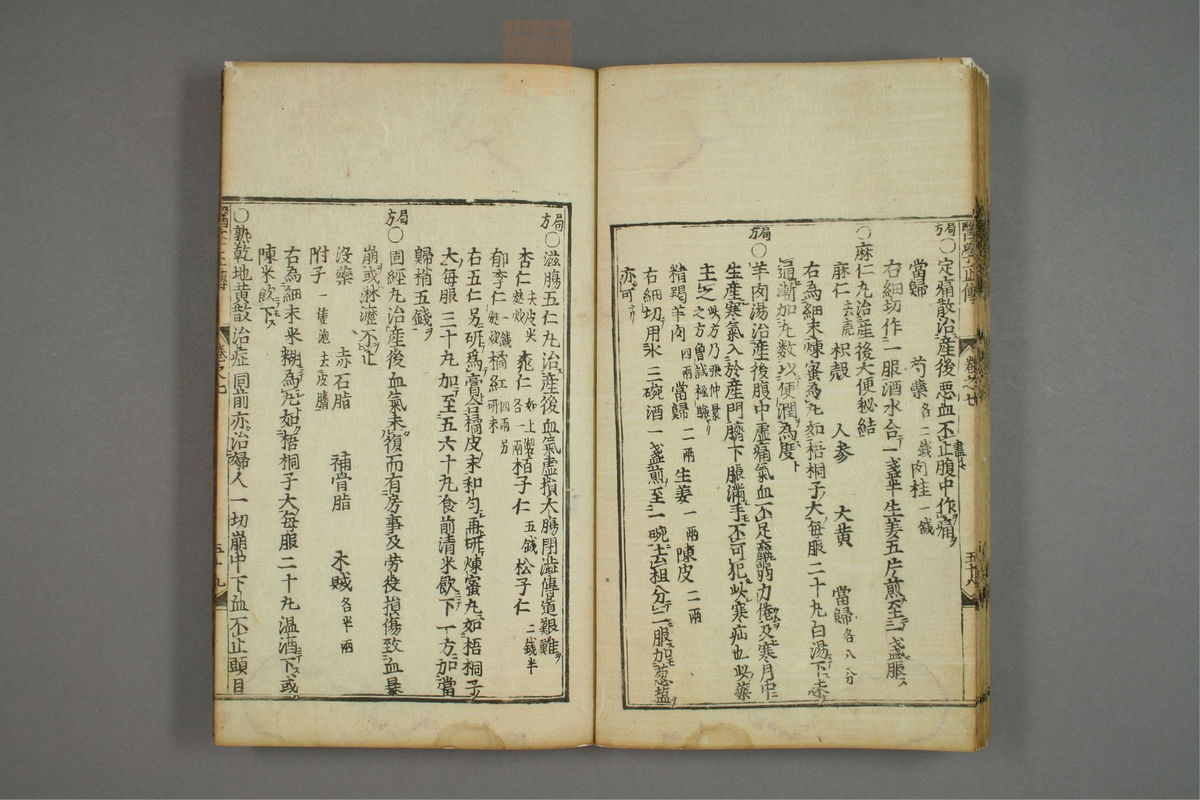 醫學正傳 卷之七 五十八
局方○定痛散治産後惡血不止腹中作痛
當歸 芍藥各二錢肉桂一錢
右細切作一服酒水合一盞半生姜五片煎至一盞服
○麻仁丸治産後大便秘結
麻仁去壳 枳殼 人參 大黄 當歸各八分
右為細末煉蜜為丸如梧桐子大每服二十丸白湯下未
通漸加丸數以便潤為度
局方○羊肉湯治産後腹中虛痛氣血不足羸弱力倦及寒月中
生産寒氣入於産門臍下脹滿手不可犯此寒疝也此藥
主之此方乃張仲景之方曾試極驗
精羯羊肉四兩當歸二兩生姜一兩陳皮二兩
右細切用水三碗酒一盞煎至一碗去粗分二服加葱鹽
亦可
局方○滋腸五仁丸治産後血氣虛損大腸閉澁傳道艱難
杏仁去皮尖麩炒桃仁如上製各一兩栢子仁五錢松子仁二錢半
郁李仁一錢麩炒橘紅四兩另研末
右五仁另研為膏合橘皮末和勻再研煉蜜丸如梧桐子
大每服三十丸加至五六十丸食前清米飲下一方加當
歸梢五錢
局方○固經丸治産後血氣未復而有房事及労役損傷致血暴
崩或淋瀝不止
沒藥 赤石脂 補骨脂 木賊各半兩
附子一隻泡去皮臍
右為細末米糊為丸如梧桐子大每服二十丸温酒下或
陳米飲下
○熟乾地黄散治症同前亦治婦人一切崩中下血不止頭目
醫學正傳 卷之七 五十九